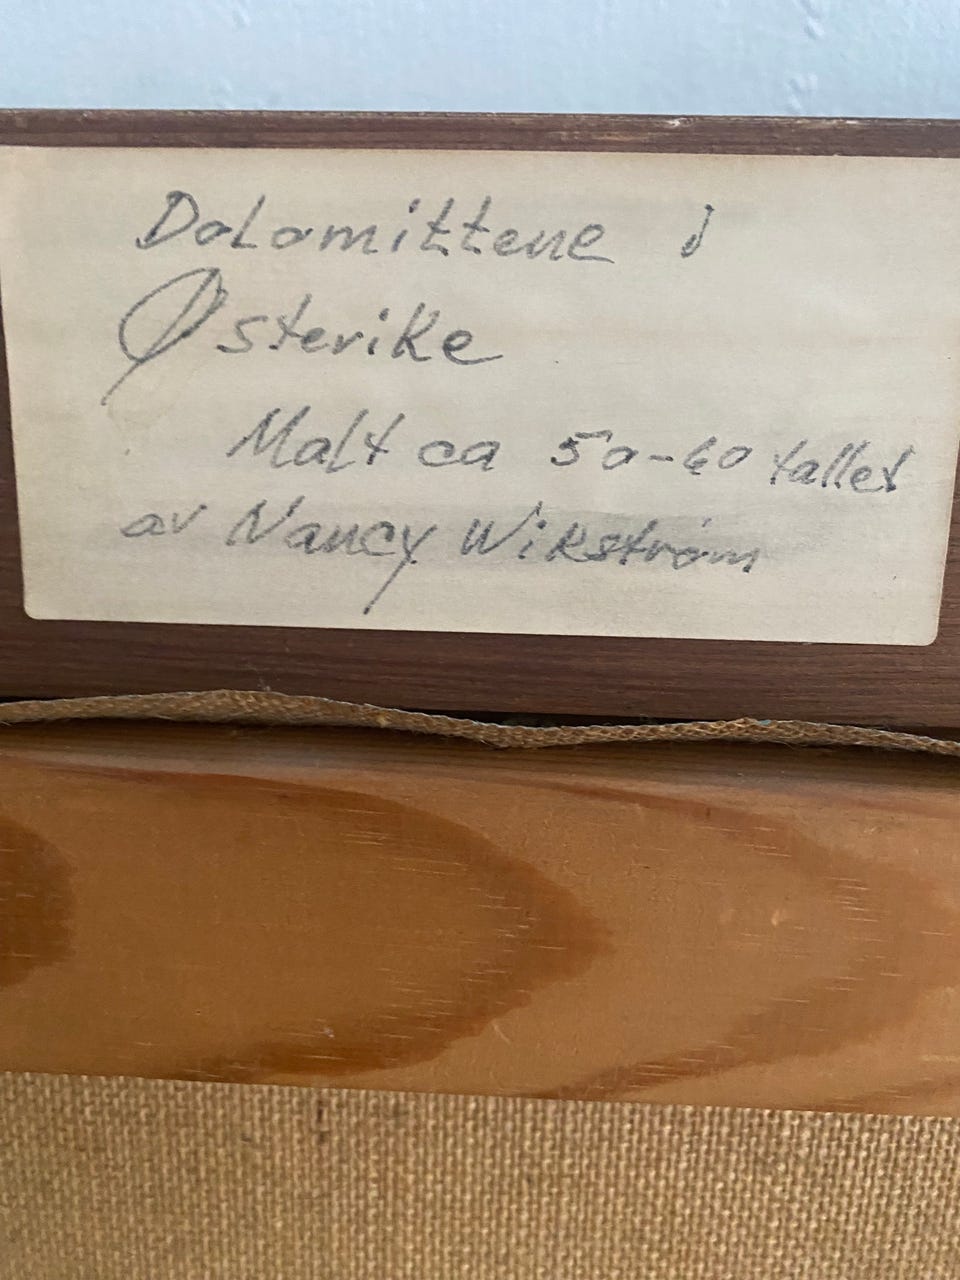 Dolomittene i
Østerike
Malt ca 50-60 tallet
av Nancy Wikstrøm